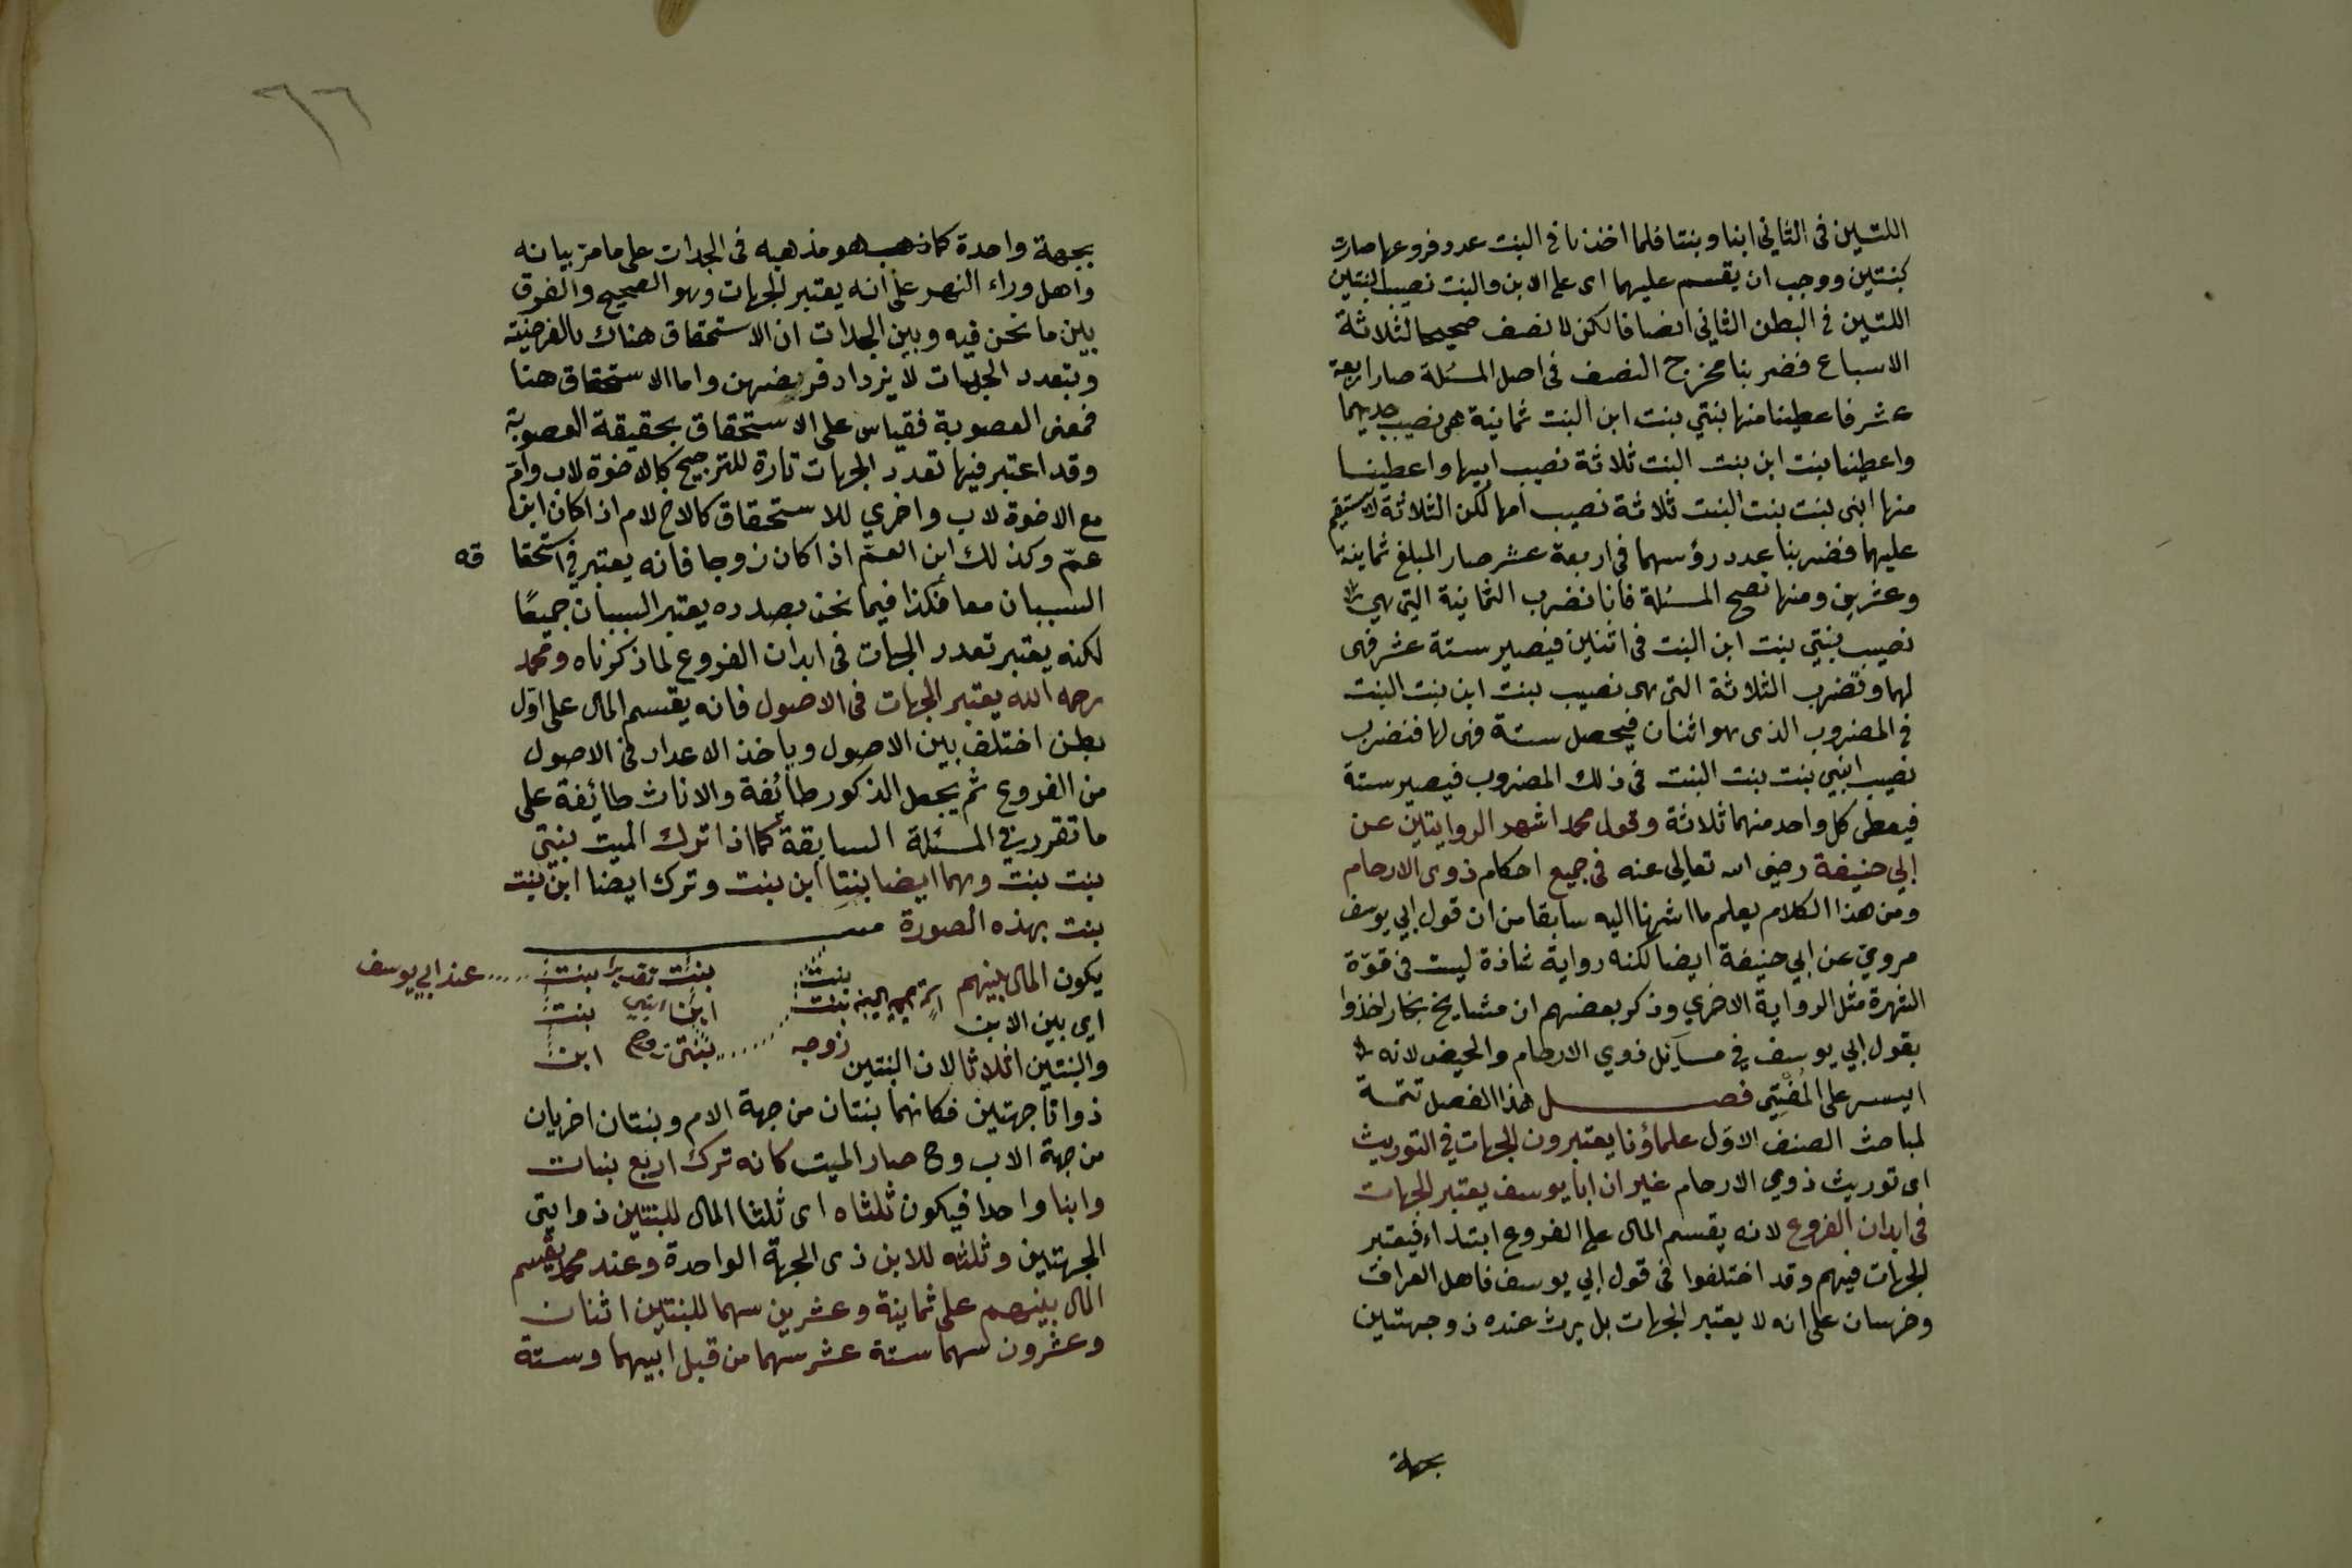 اللتين فى الثاني ابنا وبنتا فلما اخذنا فى البنت عدد فروعها صارت
كبنتين ووجب ان يقسم عليهما اى على الابن والبنت نصيب البنتين
اللتين فى البطن الثاني انصافا لكن لا نصف صحيحا لثلاثة
الاسباع فضربنا مخرج النصف فى اصل المسئلة صار اربعة
عشر فاعطينا منها بنتي بنت ابن البنت ثمانية هى نصيب جديهما
واعطينا بنت ابن بنت البنت ثلاثة نصيب ابيها واعطينا
منها ابنى بنت بنت البنت ثلاثة نصيب امها لكن الثلاثة لا يستقيم
عليهما فضربنا عدد رؤسهما فى اربعة عشر صار المبلغ ثمانية
وعشرين ومنها تصح المسئلة فانا نضرب الثمانية التى هى
نصيب بنتي بنت ابن البنت فى اثنين فيصير ستة عشر فهى
لهما ونضرب الثلاثة التى هى نصيب بنت ابن بنت البنت
فى المضروب الذى هو اثنان فيحصل ستة فهى لها فنضرب
نصيب ابني بنت بنت البنت فى ذلك المضروب فيصير ستة
فيعطى كل واحد منهما ثلاثة وقول محمد اشهر الروايتين عن
ابي حنيفة رضى الله تعالى عنه فى جميع احكام ذوى الارحام
ومن هذا الكلام يعلم ما اشرنا اليه سابقا من ان قول ابي يوسف
مروي عن ابي حنيفة ايضا لكنه رواية شاذة ليست فى قوة
الشهرة مثل الرواية الاخري وذكر بعضهم ان مشايخ بخارا اخذوا
بقول ابي يوسف في مسآئل ذوي الارحام والحيض لانه
ايسر على المفتي فصل هذا الفصل تتمة
لمباحث الصنف الاول علماؤنا يعتبرون الجهات في التوريث
اى توريث ذوي الارحام غير ان ابا يوسف يعتبر الجهات
فى ابدان الفروع لانه يقسم المال على الفروع ابتداء فيعتبر
الجهات فيهم وقد اختلفوا فى قول ابي يوسف فاهل العراق
وخرسان على انه لا يعتبر الجهات بل يرث عنده ذو جهتين
بجهة
٦٦
بجهة واحدة كما هو مذهبه فى الجدات على ما مر بيانه
واهل وراء النهر على انه يعتبر الجهات وهو الصحيح والفرق
بين ما نحن فيه وبين الجدات ان الاستحقاق هناك بالفرضية
وبتعدد الجهات لا يزداد فريضهن واما الاستحقاق هنا
فمعنى العصوبة فقياس على الاستحقاق بحقيقة العصوبة
وقد اعتبر فيها تعدد الجهات تارة للترجيح كالاخوة لاب وام
مع الاخوة لاب واخري للاستحقاق كالاخ لام اذا كان ابن
عم وكذلك ابن العم اذا كان زوجا فانه يعتبر في استحقا قه
السببان معا فكذا فيما نحن بصدده يعتبر السببان جميعا
لكنه يعتبر تعدد الجهات فى ابدان الفروع لما ذكرناه ومحمد
رحمه الله يعتبر الجهات فى الاصول فانه يقسم المال على اول
بطن اختلف بين الاصول وياخذ الاعداد فى الاصول
من الفروع ثم يجعل الذكور طائفة والاناث طائفة على
ما تقرر في المسئلة السابقة كما اذا ترك الميت بنتي
بنت بنت وهما ايضا بنتا ابن بنت وترك ايضا ابن بنت
بنت بهذه الصورة
يكون المال بينهم بنت بنت تقديرا بنت عند ابي يوسف
اي بين الابن بنت ابن بنت
والبنتين اثلاثا لان البنتين زوجه بنتي زوج ابن
ذواتا جهتين فكانهما بنتان من جهة الام وبنتان اخريان
من جهة الاب وح صار الميت كانه ترك اربع بنات
وابنا واحدا فيكون ثلثاه اى ثلثا المال للبنتين ذواتى
الجهتين وثلثه للابن ذى الجهة الواحدة وعند محمد يقسم
المال بينهم على ثمانية وعشرين سهما للبنتين اثنان
وعشرون سهما ستة عشر سهما من قبل ابيهما وستة